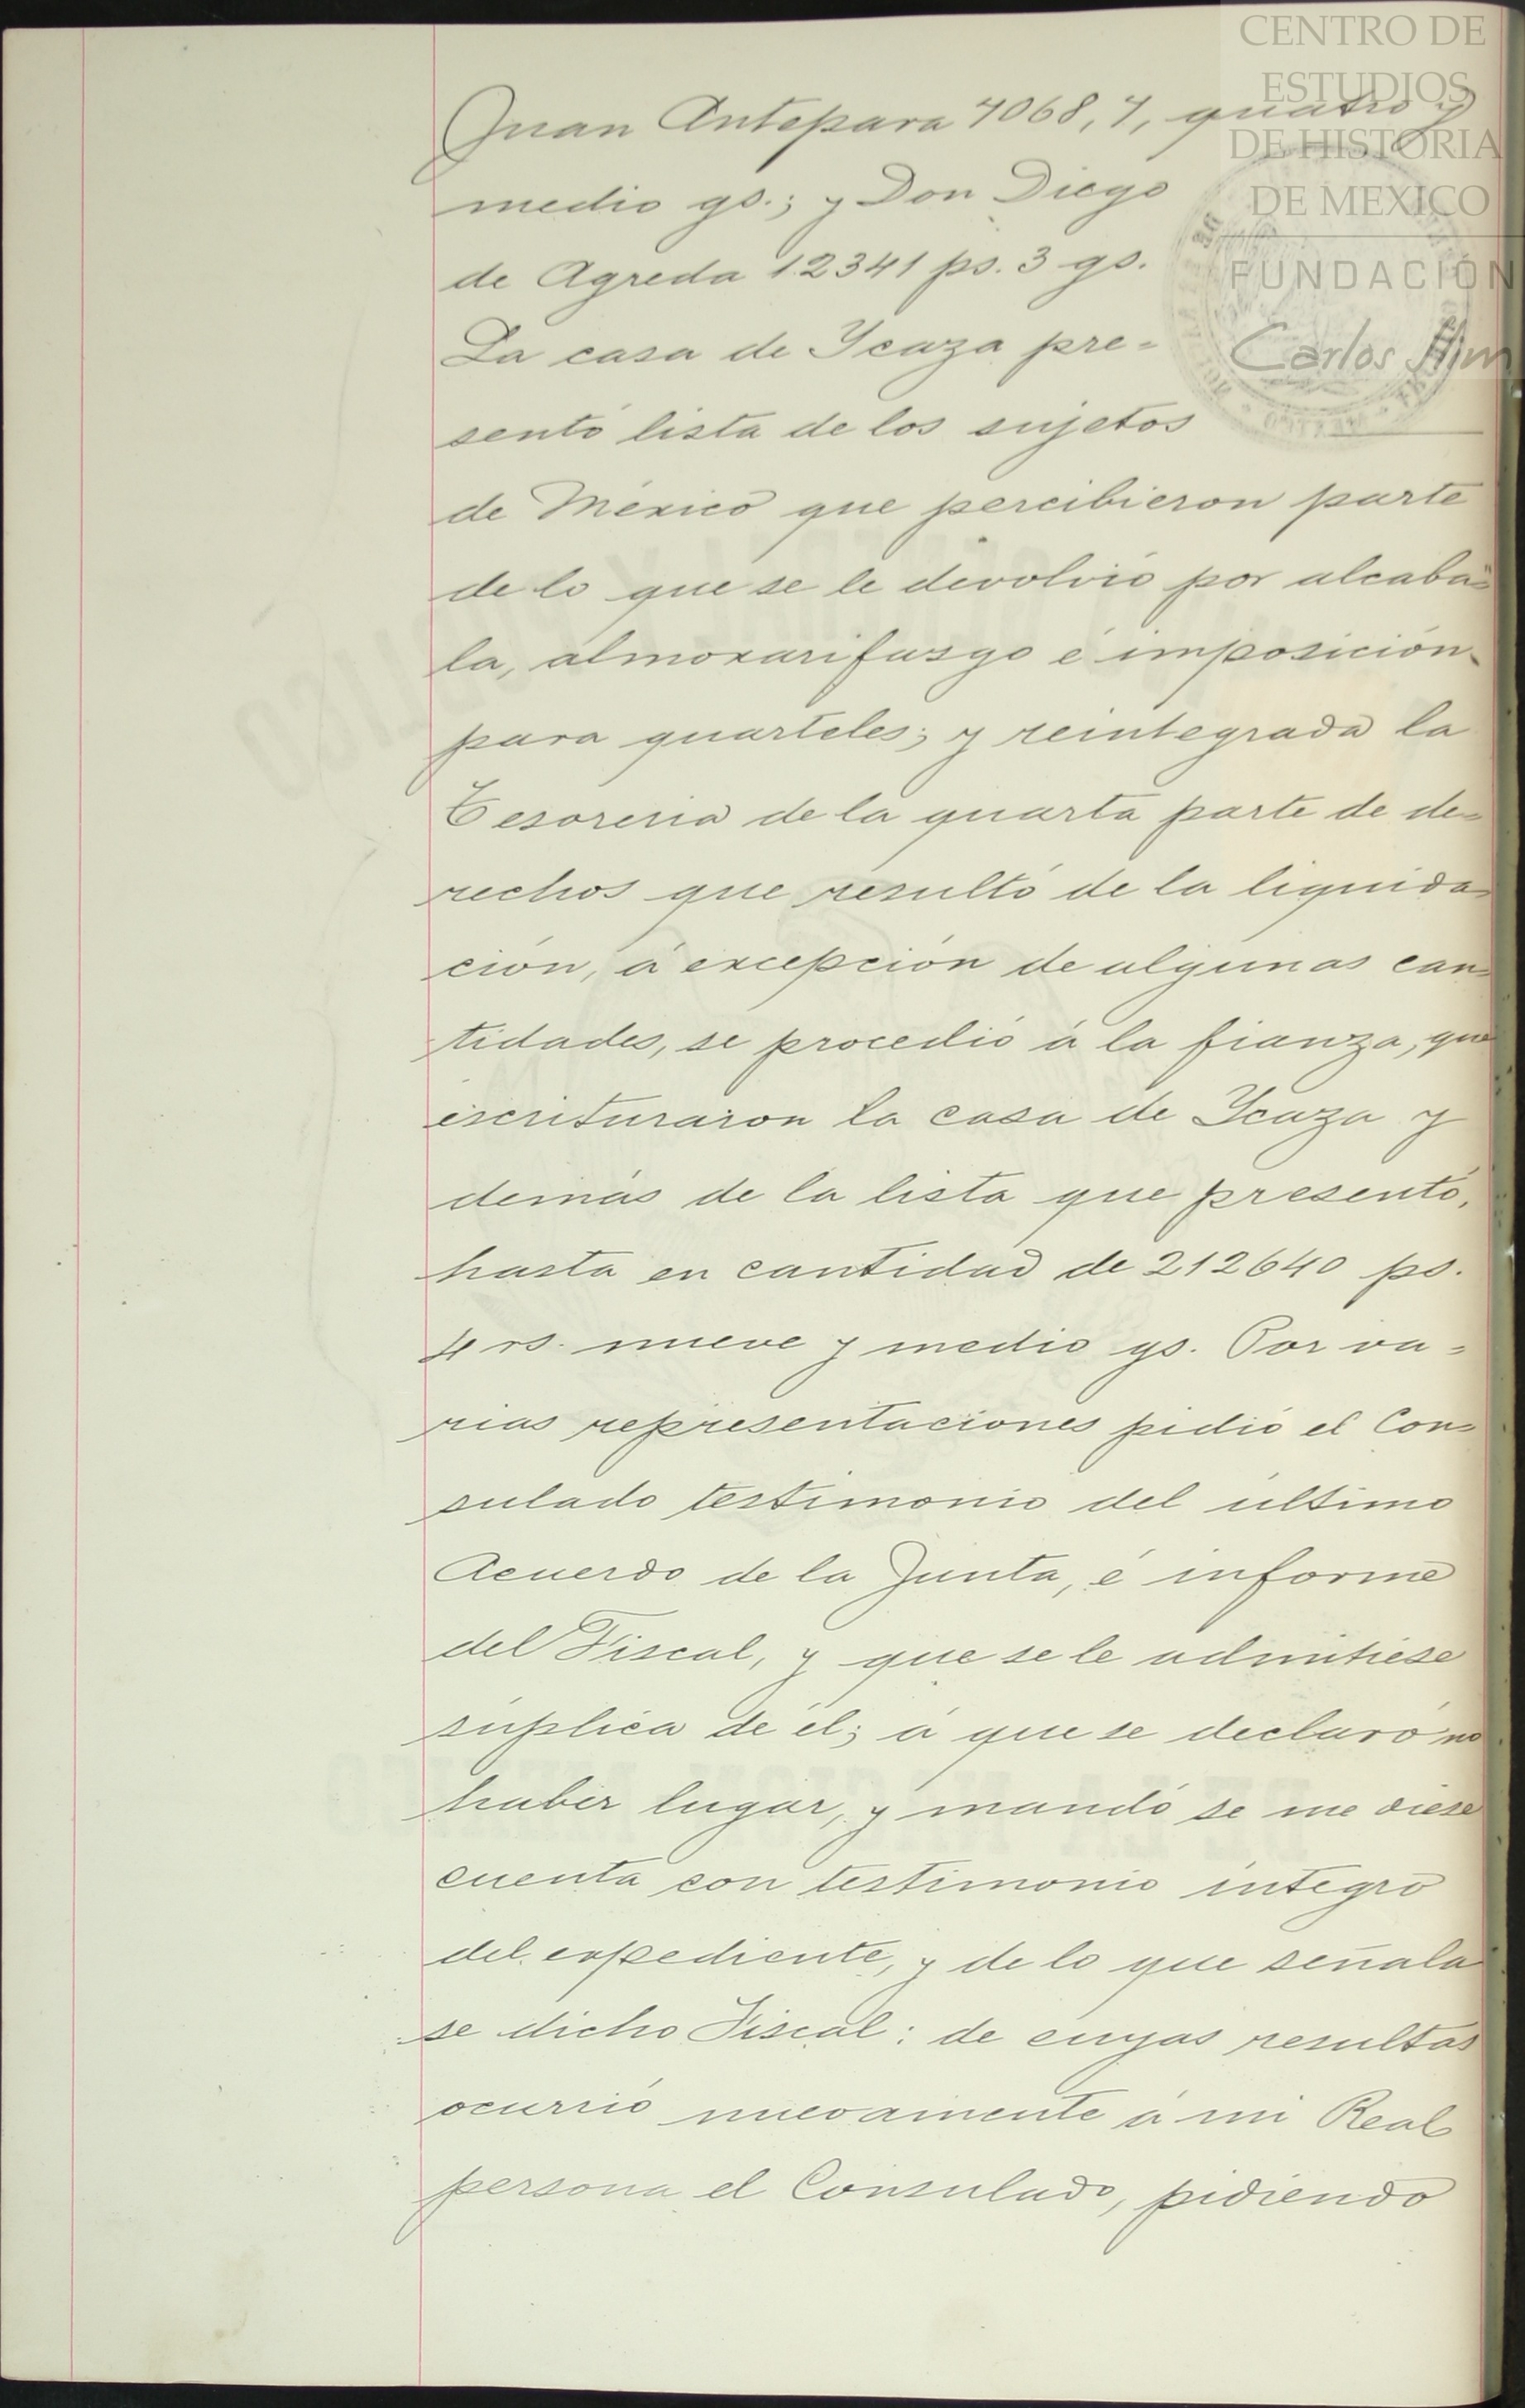 CENTRO DE
ESTUDIOS
DE HISTORIA
DE MEXICO
FUNDACIÓN
Carlos Slim
Juan Antepara 4068, 7, quatro y
medio gs.; y Don Diego
de Agreda 12341 ps. 3 gs.
La casa de Ycaza pre=
sentó lista de los sujetos
de México que percibieron parte
de lo que se le devolvió por alcaba=
la, almoxarifasgo é imposición
para quarteles; y reintegrada la
Tesoreria de la quarta parte de de=
rechos que resultó de la liquida=
ción, á excepción de algunas can=
tidades, se procedió á la fianza, que
escrituraron la casa de Ycaza y
demás de la lista que presentó,
hasta en cantidad de 212640 ps.
4 rs. nueve y medio gs. Por va=
rias representaciones pidió el Con=
sulado testimonio del último
Acuerdo de la Junta, é informe
del Fiscal, y que se le admitiese
súplica de él; á que se declaró no
haber lugar, y mandó se me diese
cuenta con testimonio integro
del expediente, y de lo que señala
se dicho Fiscal: de cuyas resultas
ocurrió nuevamente á mi Real
persona el Consulado, pidiendo